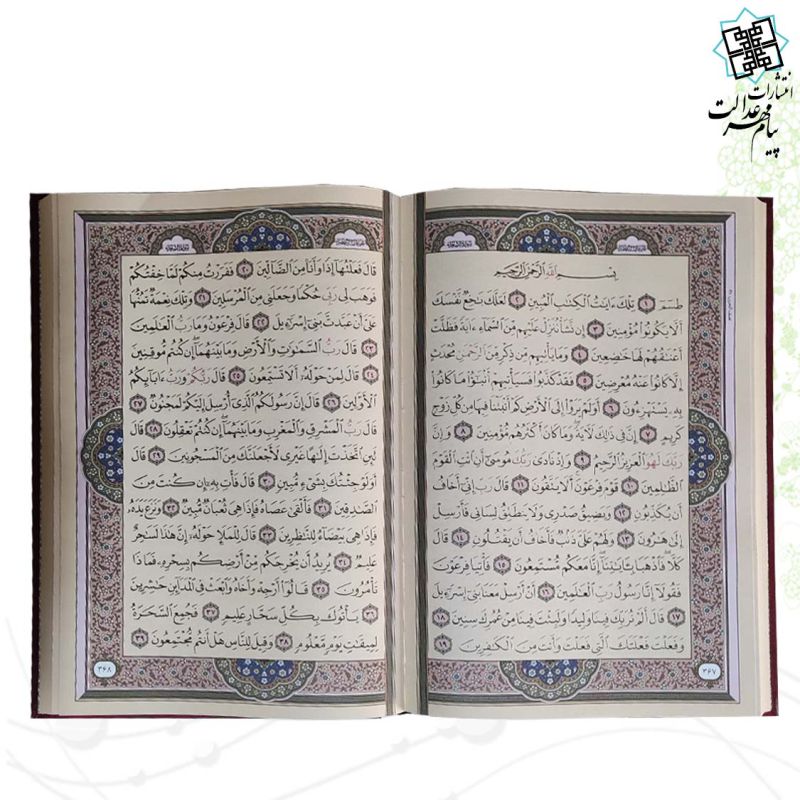 انتشارات
پیام مهر عدالت
بِسْمِ اللَّهِ الرَّحْمَٰنِ الرَّحِيمِ
طسٓمٓ ١ تِلْكَ ءَايَٰتُ الْكِتَٰبِ الْمُبِينِ ٢ لَعَلَّكَ بَٰخِعٌ نَفْسَكَ
أَلَّا يَكُونُوا مُؤْمِنِينَ ٣ إِنْ نَشَأْ نُنَزِّلْ عَلَيْهِمْ مِنَ السَّمَاءِ ءَايَةً فَظَلَّتْ
أَعْنَٰقُهُمْ لَهَا خَٰضِعِينَ ٤ وَمَا يَأْتِيهِمْ مِنْ ذِكْرٍ مِنَ الرَّحْمَٰنِ مُحْدَثٍ
إِلَّا كَانُوا عَنْهُ مُعْرِضِينَ ٥ فَقَدْ كَذَّبُوا فَسَيَأْتِيهِمْ أَنْبَٰٓؤُا مَا كَانُوا
بِهِ يَسْتَهْزِءُونَ ٦ أَوَلَمْ يَرَوْا إِلَى الْأَرْضِ كَمْ أَنْبَتْنَا فِيهَا مِنْ كُلِّ زَوْجٍ
كَرِيمٍ ٧ إِنَّ فِي ذَٰلِكَ لَءَايَةً وَمَا كَانَ أَكْثَرُهُمْ مُؤْمِنِينَ ٨ وَإِنَّ
رَبَّكَ لَهُوَ الْعَزِيزُ الرَّحِيمُ ٩ وَإِذْ نَادَىٰ رَبُّكَ مُوسَىٰ أَنِ ائْتِ الْقَوْمَ
الظَّٰلِمِينَ ١٠ قَوْمَ فِرْعَوْنَ أَلَا يَتَّقُونَ ١١ قَالَ رَبِّ إِنِّي أَخَافُ
أَنْ يُكَذِّبُونِ ١٢ وَيَضِيقُ صَدْرِي وَلَا يَنْطَلِقُ لِسَانِي فَأَرْسِلْ
إِلَىٰ هَٰرُونَ ١٣ وَلَهُمْ عَلَيَّ ذَنْبٌ فَأَخَافُ أَنْ يَقْتُلُونِ ١٤ قَالَ
كَلَّا فَاذْهَبَا بِءَايَٰتِنَا إِنَّا مَعَكُمْ مُسْتَمِعُونَ ١٥ فَأْتِيَا فِرْعَوْنَ
فَقُولَا إِنَّا رَسُولُ رَبِّ الْعَٰلَمِينَ ١٦ أَنْ أَرْسِلْ مَعَنَا بَنِي إِسْرَٰءِيلَ
١٧ قَالَ أَلَمْ نُرَبِّكَ فِينَا وَلِيدًا وَلَبِثْتَ فِينَا مِنْ عُمُرِكَ سِنِينَ ١٨
وَفَعَلْتَ فَعْلَتَكَ الَّتِي فَعَلْتَ وَأَنْتَ مِنَ الْكَٰفِرِينَ ١٩
٣٦٧
قَالَ فَعَلْتُهَا إِذًا وَأَنَا مِنَ الضَّالِّينَ ٢٠ فَفَرَرْتُ مِنْكُمْ لَمَّا خِفْتُكُمْ
فَوَهَبَ لِي رَبِّي حُكْمًا وَجَعَلَنِي مِنَ الْمُرْسَلِينَ ٢١ وَتِلْكَ نِعْمَةٌ تَمُنُّهَا
عَلَيَّ أَنْ عَبَّدْتَ بَنِي إِسْرَٰءِيلَ ٢٢ قَالَ فِرْعَوْنُ وَمَا رَبُّ الْعَٰلَمِينَ
٢٣ قَالَ رَبُّ السَّمَٰوَٰتِ وَالْأَرْضِ وَمَا بَيْنَهُمَا إِنْ كُنْتُمْ مُوقِنِينَ
٢٤ قَالَ لِمَنْ حَوْلَهُ أَلَا تَسْتَمِعُونَ ٢٥ قَالَ رَبُّكُمْ وَرَبُّ ءَابَائِكُمُ
الْأَوَّلِينَ ٢٦ قَالَ إِنَّ رَسُولَكُمُ الَّذِي أُرْسِلَ إِلَيْكُمْ لَمَجْنُونٌ ٢٧
قَالَ رَبُّ الْمَشْرِقِ وَالْمَغْرِبِ وَمَا بَيْنَهُمَا إِنْ كُنْتُمْ تَعْقِلُونَ ٢٨ قَالَ
لَئِنِ اتَّخَذْتَ إِلَٰهًا غَيْرِي لَأَجْعَلَنَّكَ مِنَ الْمَسْجُونِينَ ٢٩ قَالَ
أَوَلَوْ جِئْتُكَ بِشَيْءٍ مُبِينٍ ٣٠ قَالَ فَأْتِ بِهِ إِنْ كُنْتَ مِنَ
الصَّٰدِقِينَ ٣١ فَأَلْقَىٰ عَصَاهُ فَإِذَا هِيَ ثُعْبَانٌ مُبِينٌ ٣٢ وَنَزَعَ يَدَهُ
فَإِذَا هِيَ بَيْضَاءُ لِلنَّٰظِرِينَ ٣٣ قَالَ لِلْمَلَإِ حَوْلَهُ إِنَّ هَٰذَا لَسَٰحِرٌ
عَلِيمٌ ٣٤ يُرِيدُ أَنْ يُخْرِجَكُمْ مِنْ أَرْضِكُمْ بِسِحْرِهِ فَمَاذَا
تَأْمُرُونَ ٣٥ قَالُوا أَرْجِهْ وَأَخَاهُ وَابْعَثْ فِي الْمَدَائِنِ حَٰشِرِينَ
٣٦ يَأْتُوكَ بِكُلِّ سَحَّارٍ عَلِيمٍ ٣٧ فَجُمِعَ السَّحَرَةُ
لِمِيقَٰتِ يَوْمٍ مَعْلُومٍ ٣٨ وَقِيلَ لِلنَّاسِ هَلْ أَنْتُمْ مُجْتَمِعُونَ ٣٩
٣٦٨